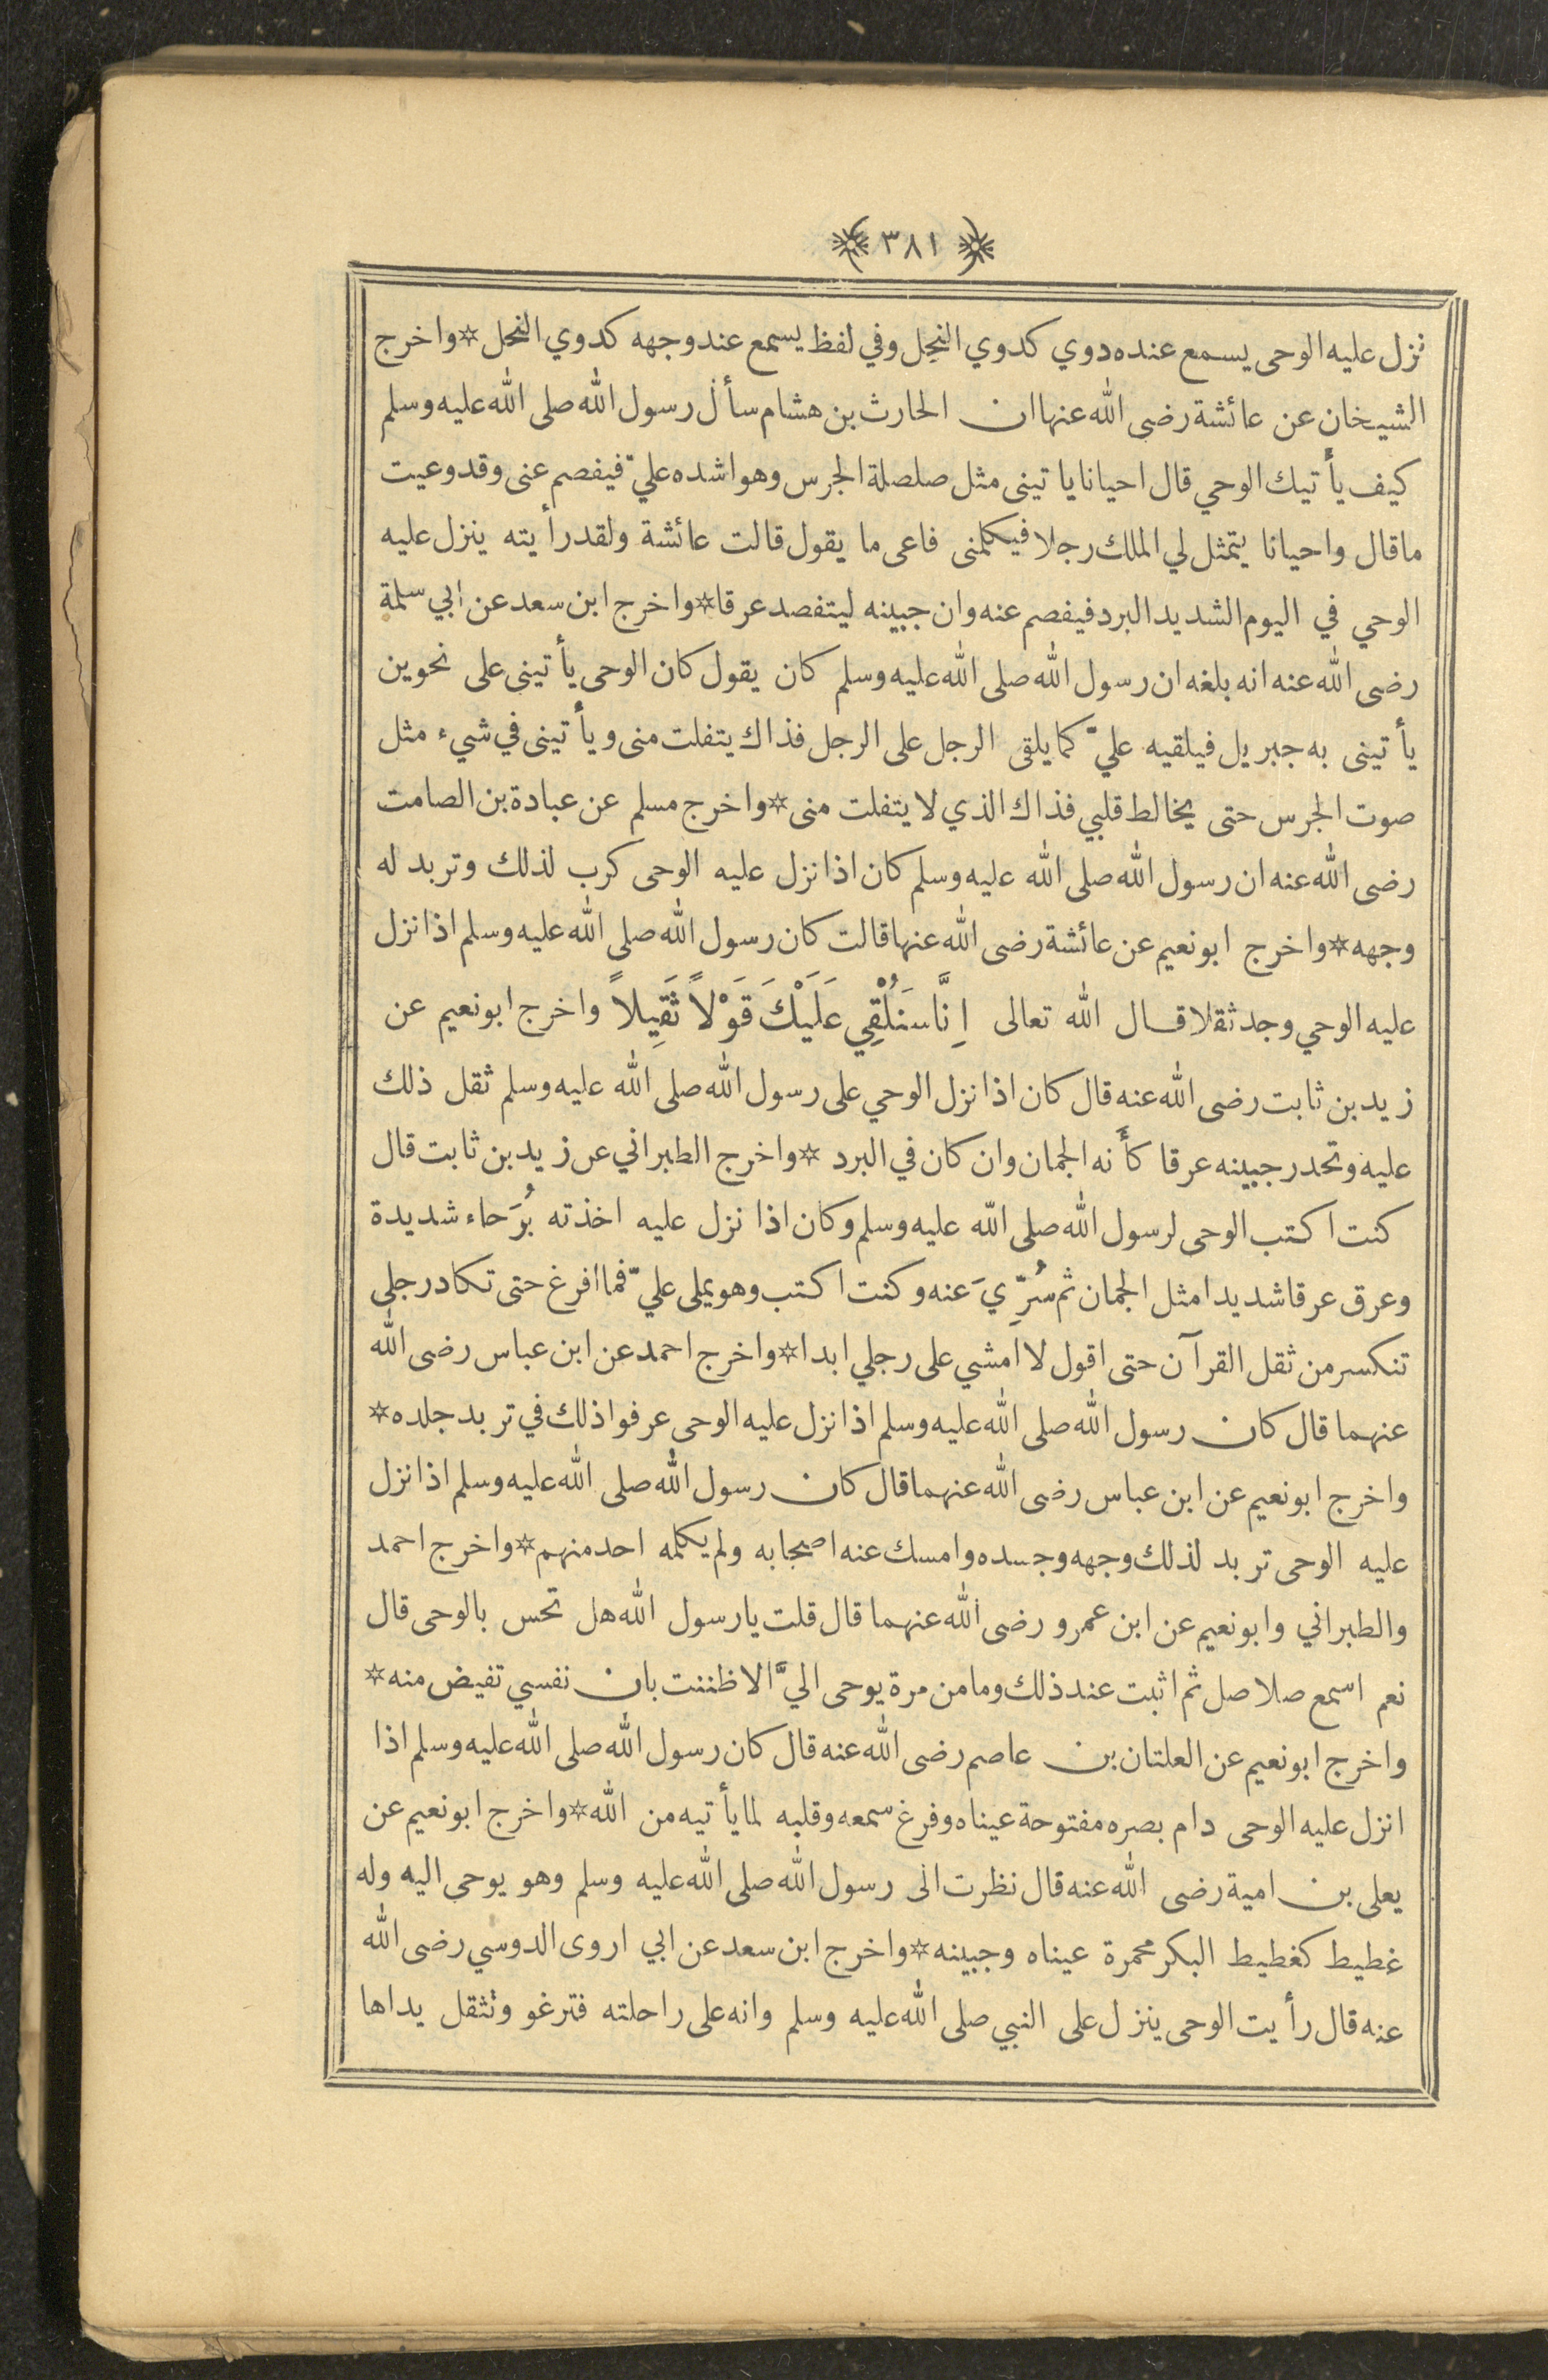 ﴿ ٣٨١ ﴾
نزل عليه الوحى يسمع عنده دوي كدوي النحل وفي لفظ يسمع عند وجهه كدوي النحل * واخرج
الشيخان عن عائشة رضى الله عنها ان الحارث بن هشام سأل رسول الله صلى الله عليه وسلم
كيف يأتيك الوحي قال احيانا ياتينى مثل صلصلة الجرس وهو اشده عليّ فيفصم عنى وقد وعيت
ما قال واحيانا يتمثل لي الملك رجلا فيكلمنى فاعى ما يقول قالت عائشة ولقد رأيته ينزل عليه
الوحي في اليوم الشديد البرد فيفصم عنه وان جبينه ليتفصد عرقا * واخرج ابن سعد عن ابي سلمة
رضى الله عنه انه بلغه ان رسول الله صلى الله عليه وسلم كان يقول كان الوحى يأتينى على نحوين
يأتينى به جبريل فيلقيه عليّ كما يلقى الرجل على الرجل فذاك يتفلت منى ويأتينى في شيء مثل
صوت الجرس حتى يخالط قلبي فذاك الذي لا يتفلت منى * واخرج مسلم عن عبادة بن الصامت
رضى الله عنه ان رسول الله صلى الله عليه وسلم كان اذا نزل عليه الوحى كرب لذلك وتربد له
وجهه * واخرج ابو نعيم عن عائشة رضى الله عنها قالت كان رسول الله صلى الله عليه وسلم اذا نزل
عليه الوحي وجد ثقلا قال الله تعالى اِنَّا سَنُلْقِي عَلَيْكَ قَوْلاً ثَقِيلاً واخرج ابو نعيم عن
زيد بن ثابت رضى الله عنه قال كان اذا نزل الوحي على رسول الله صلى الله عليه وسلم ثقل ذلك
عليه وتحدر جبينه عرقا كأنه الجمان وان كان في البرد * واخرج الطبراني عن زيد بن ثابت قال
كنت اكتب الوحى لرسول الله صلى الله عليه وسلم وكان اذا نزل عليه اخذته بُرَحاء شديدة
وعرق عرقا شديدا مثل الجمان ثم سُرِّيَ عنه وكنت اكتب وهو يملى عليّ فما افرغ حتى تكاد رجلي
تنكسر من ثقل القرآن حتى اقول لا امشي على رجلي ابدا * واخرج احمد عن ابن عباس رضى الله
عنهما قال كان رسول الله صلى الله عليه وسلم اذا نزل عليه الوحى عرفوا ذلك في تربد جلده *
واخرج ابو نعيم عن ابن عباس رضى الله عنهما قال كان رسول الله صلى الله عليه وسلم اذا نزل
عليه الوحى تربد لذلك وجهه وجسده وامسك عنه اصحابه ولم يكلمه احد منهم * واخرج احمد
والطبراني وابو نعيم عن ابن عمرو رضى الله عنهما قال قلت يا رسول الله هل تحس بالوحى قال
نعم اسمع صلاصل ثم اثبت عند ذلك وما من مرة يوحى اليَّ الا ظننت بان نفسي تفيض منه *
واخرج ابو نعيم عن العلتان بن عاصم رضى الله عنه قال كان رسول الله صلى الله عليه وسلم اذا
انزل عليه الوحى دام بصره مفتوحة عيناه وفرغ سمعه وقلبه لما يأتيه من الله * واخرج ابو نعيم عن
يعلى بن امية رضى الله عنه قال نظرت الى رسول الله صلى الله عليه وسلم وهو يوحى اليه وله
غطيط كغطيط البكر محمرة عيناه وجبينه * واخرج ابن سعد عن ابي اروى الدوسي رضى الله
عنه قال رأيت الوحى ينزل على النبي صلى الله عليه وسلم وانه على راحلته فترغو وتثقل يداها